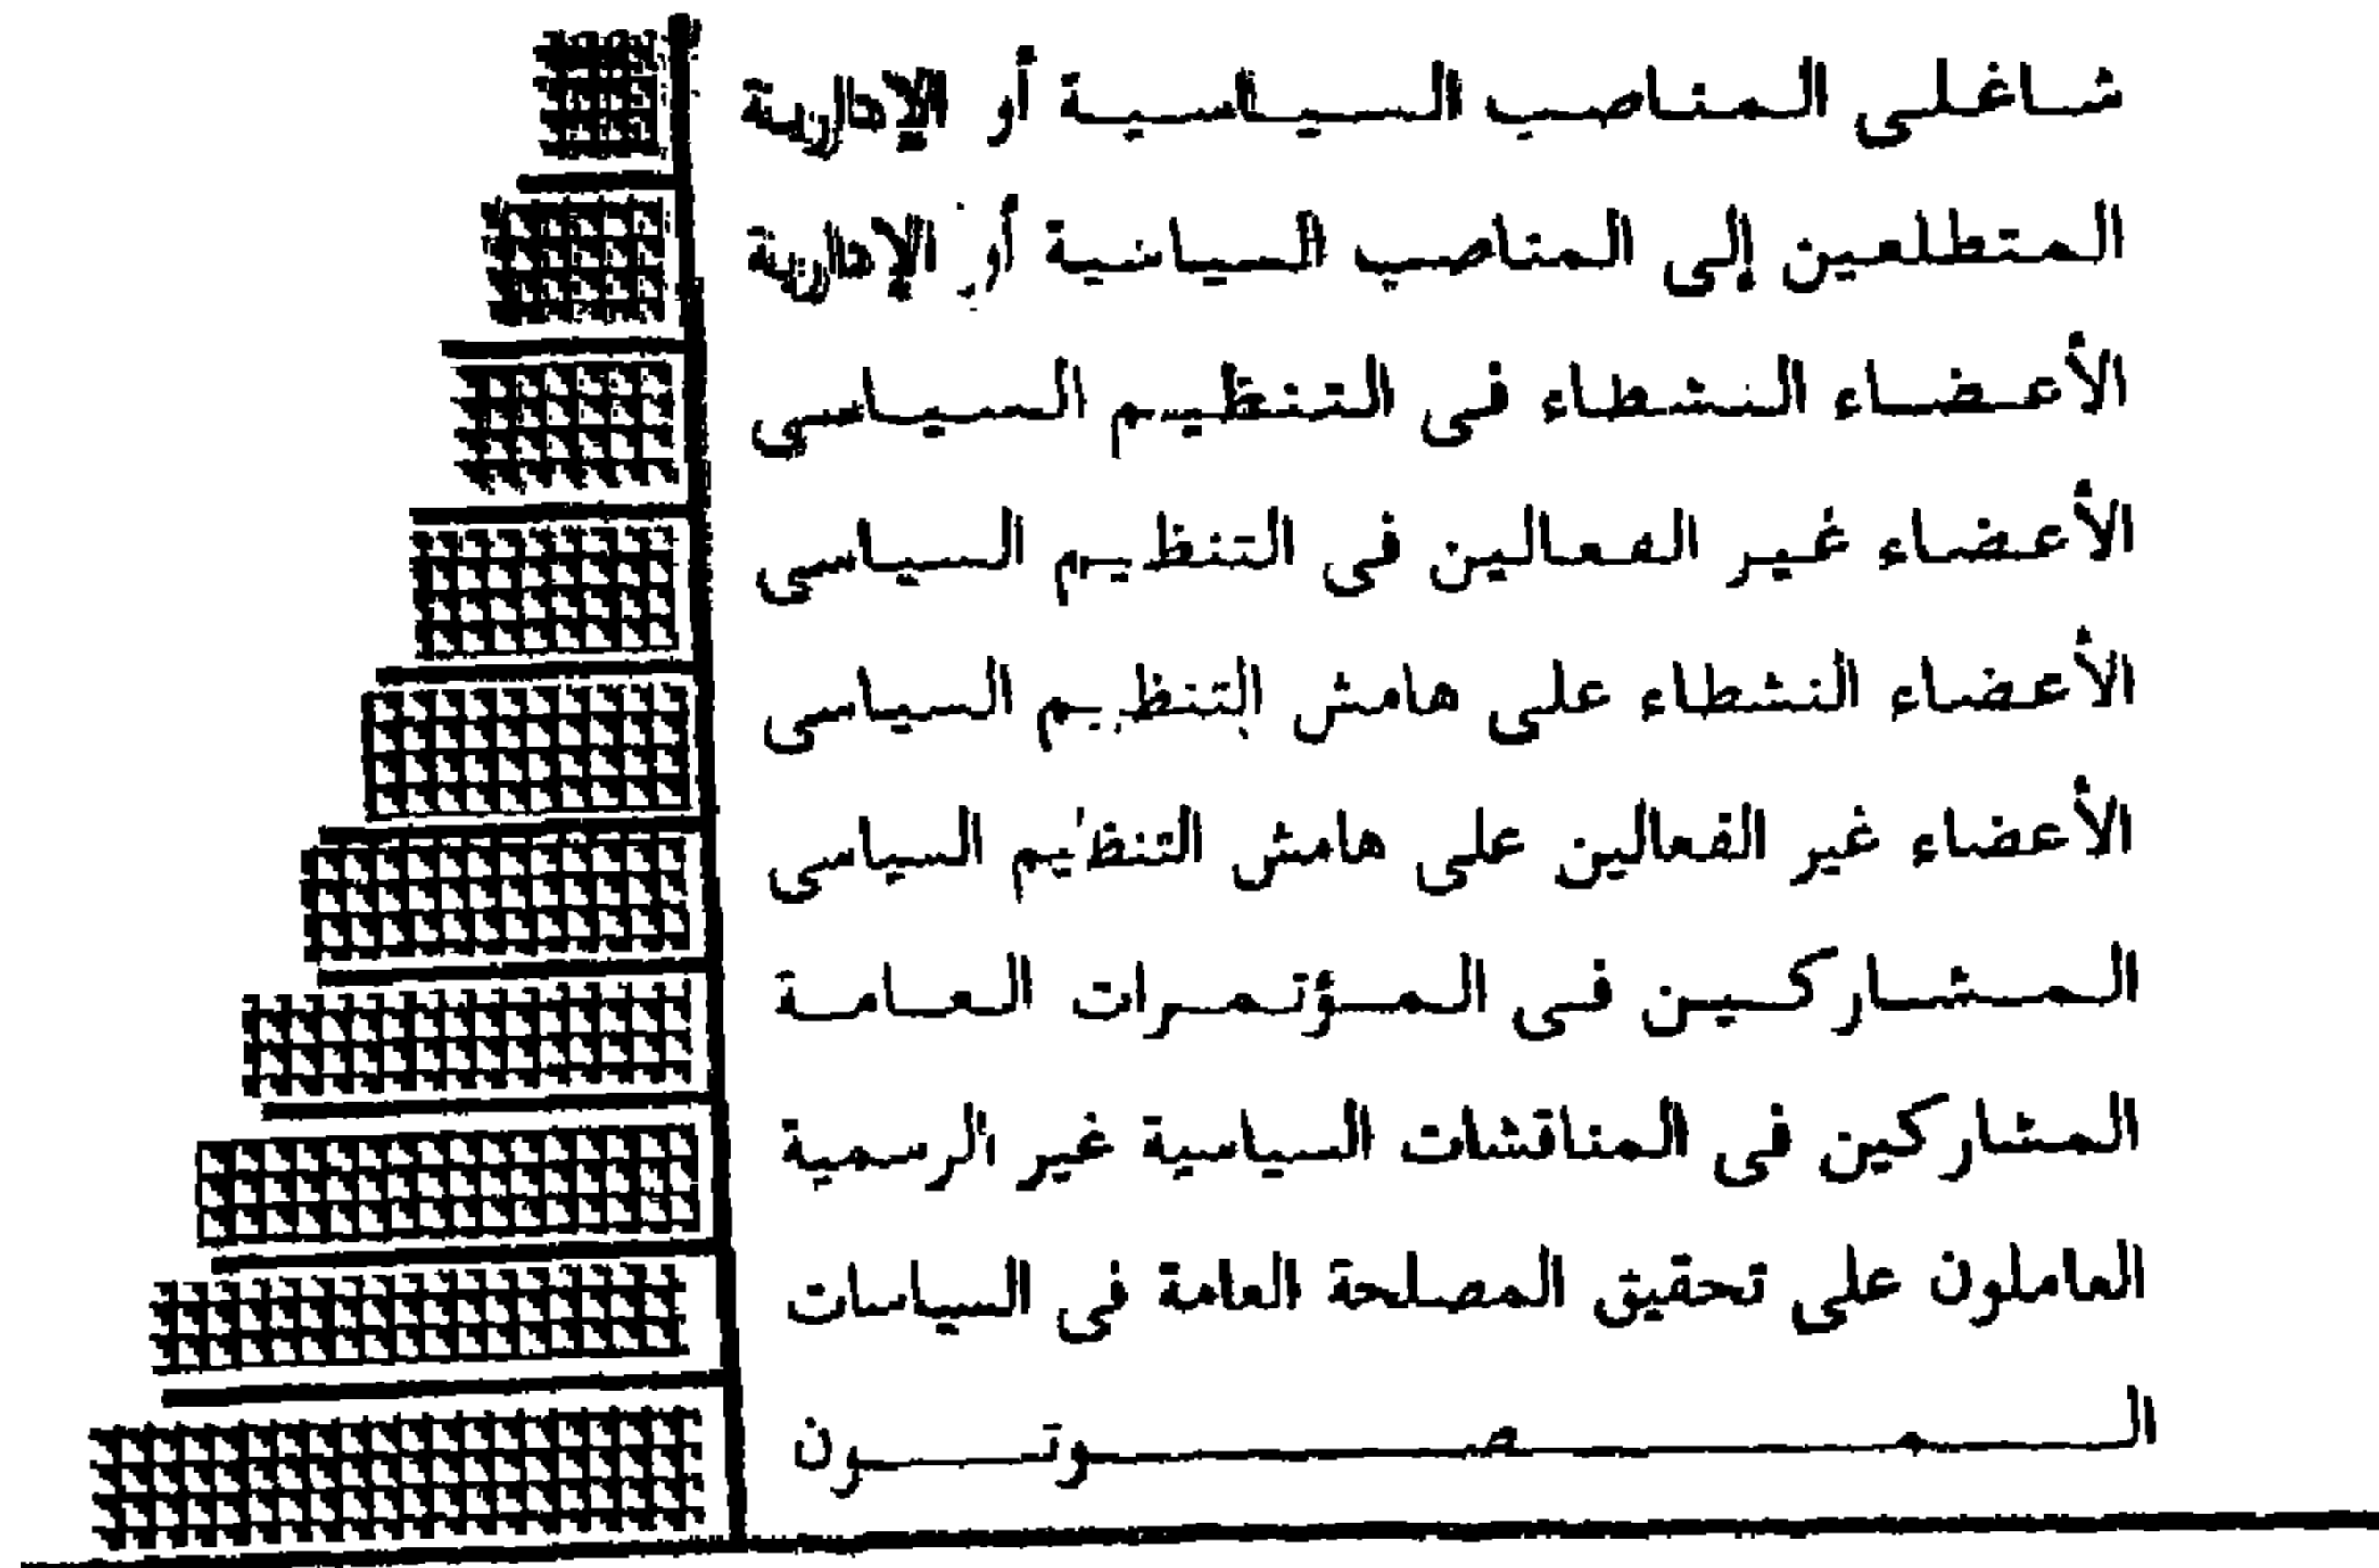 شاغلى المناصب السياسية أو الإدارية
المتطلعين إلى المناصب السياسية أو الإدارية
الأعضاء النشطاء فى التنظيم السياسى
الأعضاء غير الفعالين فى التنظيم السياسى
الأعضاء النشطاء على هامش التنظيم السياسى
الأعضاء غير الفعالين على هامش التنظيم السياسى
المشاركين فى المؤتمرات العامة
المشاركين فى المناقشات السياسية غير الرسمية
العاملون على تحقيق المصلحة العامة فى السياسات
المصوتون